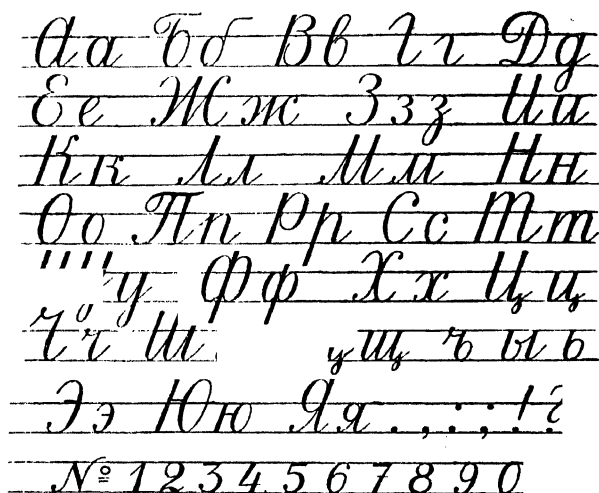 Аа Бб Вв Гг Дд
Ее Жж Ззз Ии
Кк Лл Мм Нн
Оо Пп Рр Сс Тт
у Фф Хх Цц
Чч Ш щ ъ ы ь
Ээ Юю Яя . , : ; ! ?
№ 1 2 3 4 5 6 7 8 9 0